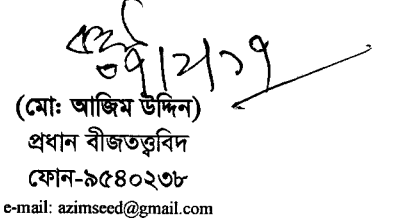 (মোঃ আজিম উদ্দিন)
প্রধান বীজতত্ত্ববিদ
ফোন-৯৫৪০২৩৮
e-mail: azimseed@gmail.com